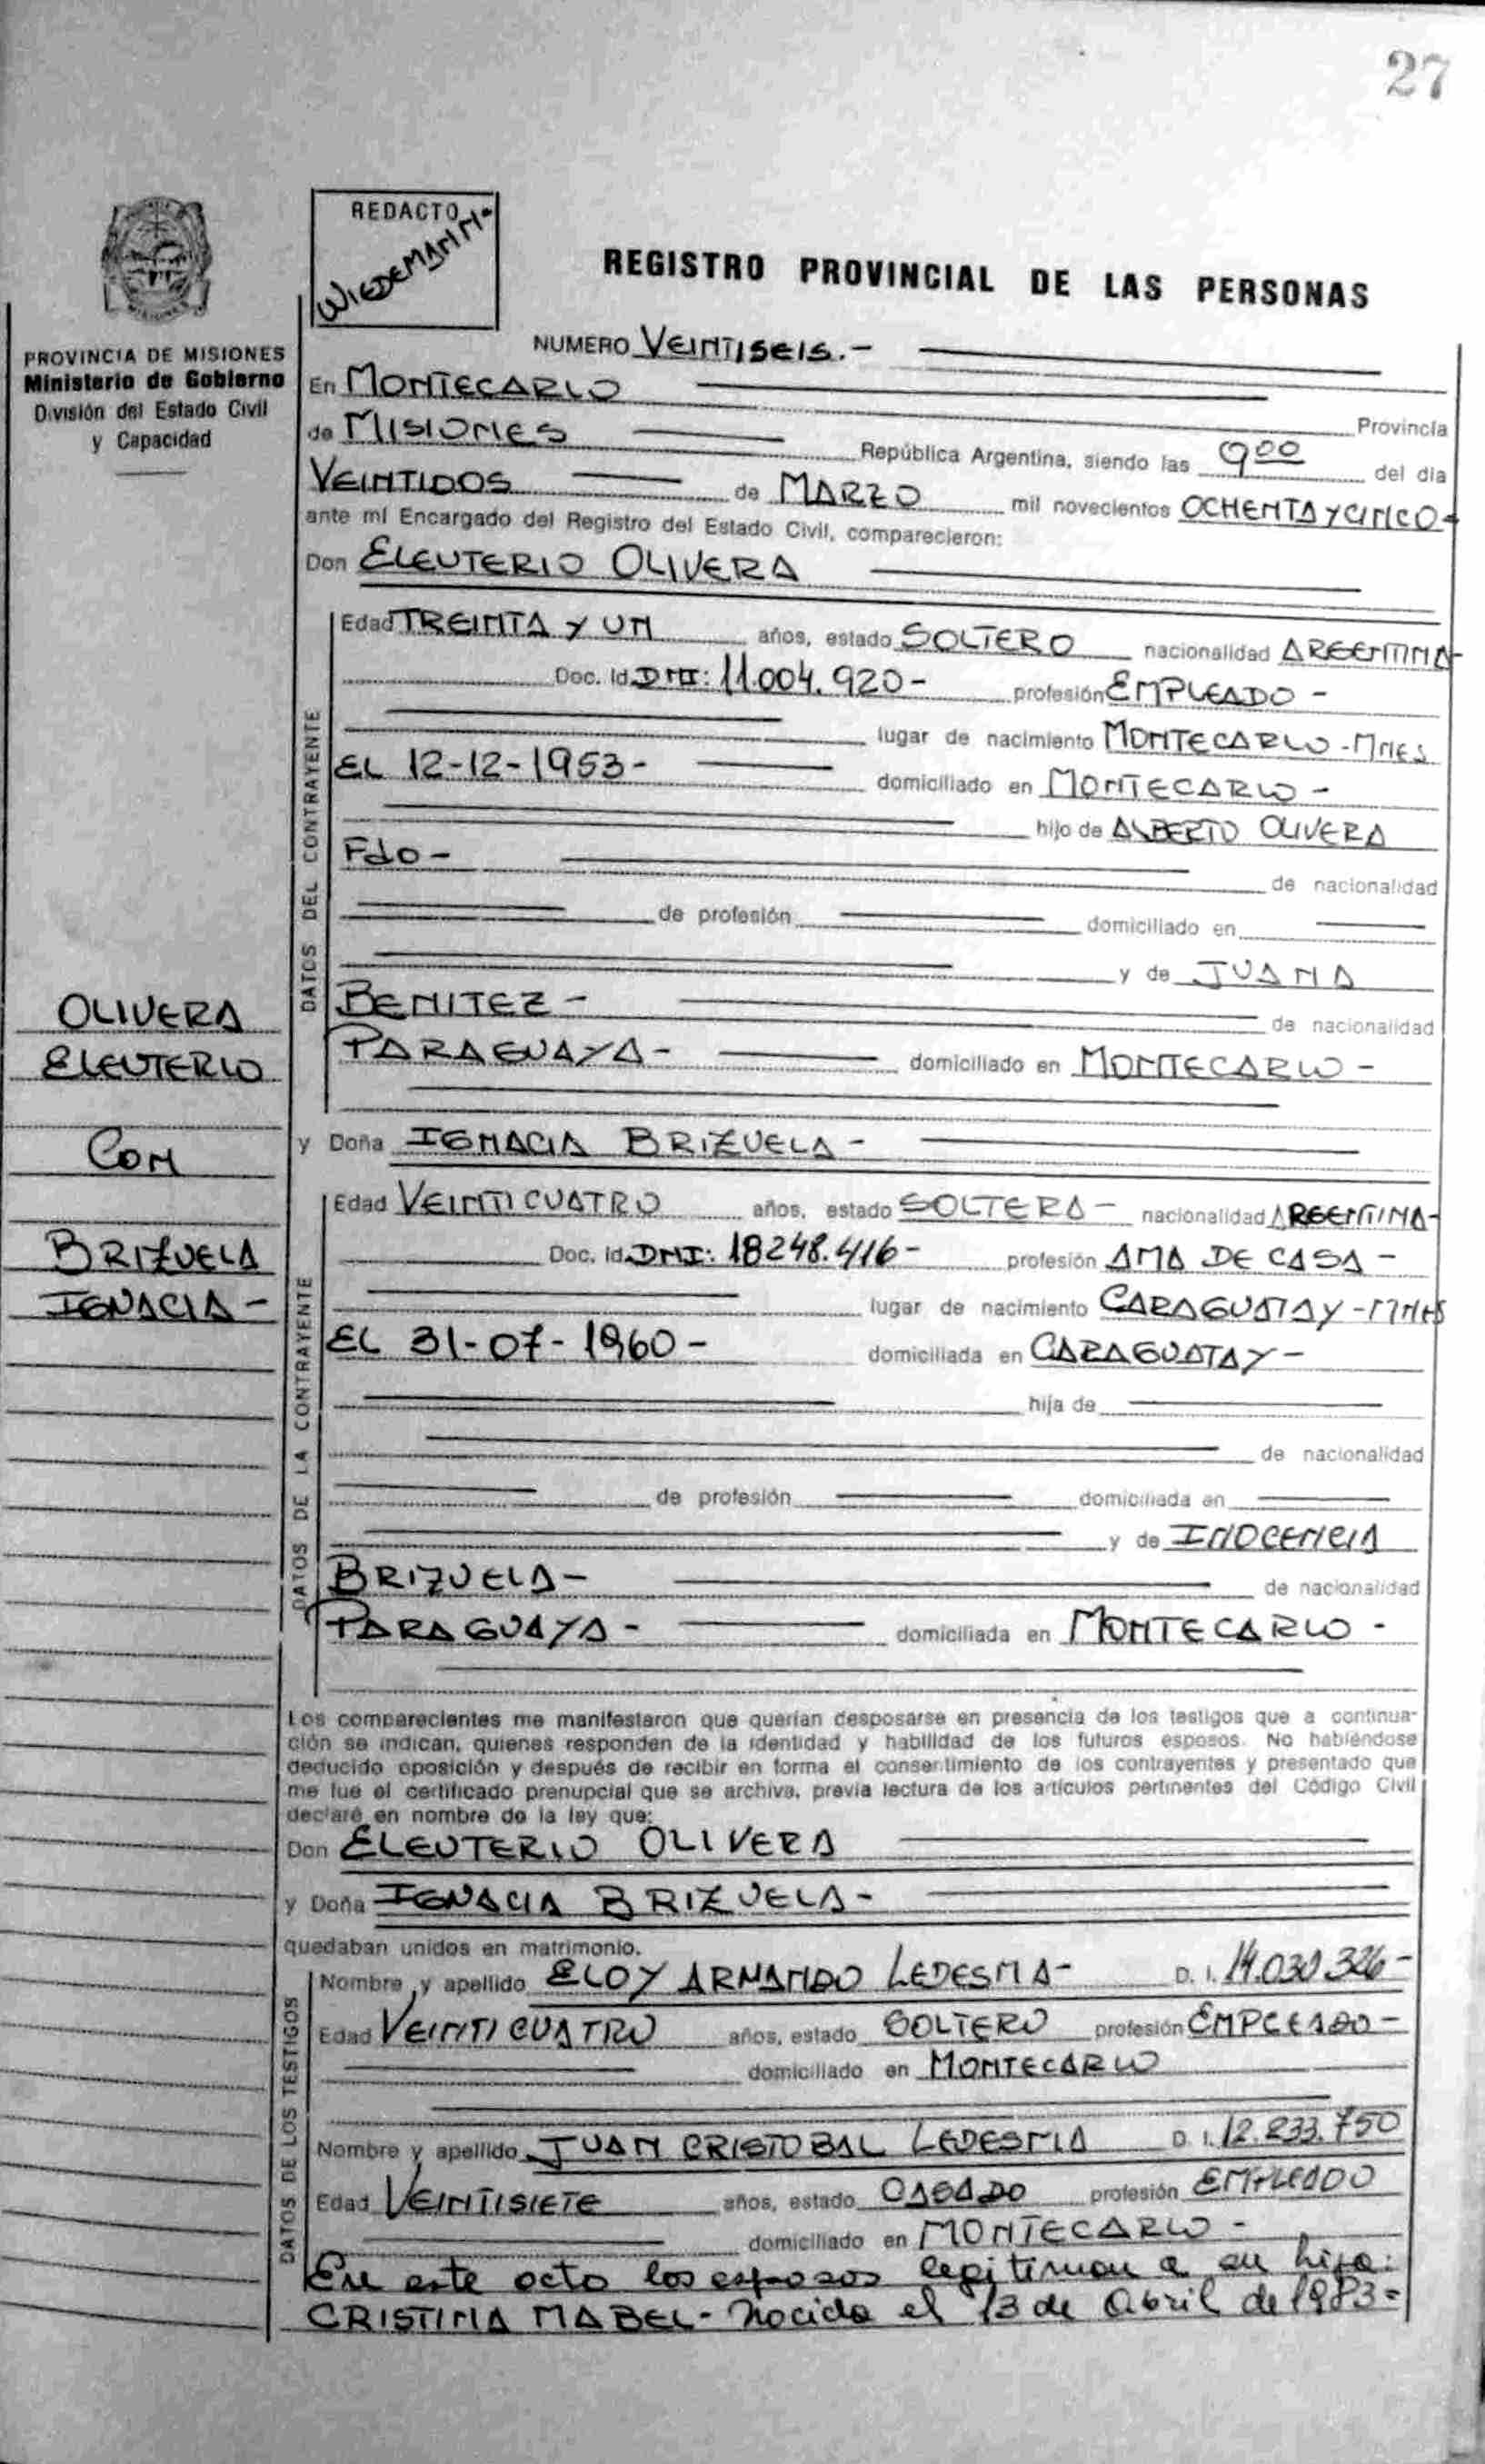 27
REDACTO
WIEDEMANN-
REGISTRO PROVINCIAL DE LAS PERSONAS
PROVINCIA DE MISIONES
Ministerio de Gobierno
División del Estado Civil
y Capacidad
NUMERO VEINTISEIS.-
En MONTECARLO
Provincia
de MISIONES República Argentina, siendo las 9 00 del dia
VEINTIDOS de MARZO mil novecientos OCHENTA Y CINCO-
ante mí Encargado del Registro del Estado Civil, comparecieron:
Don ELEUTERIO OLIVERA
DATOS DEL CONTRAYENTE
Edad TREINTA Y UN años, estado SOLTERO nacionalidad ARGENTINA-
Doc. Id. DNI: 11.004.920- profesión EMPLEADO -
lugar de nacimiento MONTECARLO-MNES
EL 12-12-1953- domiciliado en MONTECARLO -
hijo de ALBERTO OLIVERA
Fdo- de nacionalidad
de profesión domiciliado en
y de JUANA
BENITEZ - de nacionalidad
PARAGUAYA- domiciliado en MONTECARLO -
OLIVERA
ELEUTERIO
CON
BRIZUELA
IGNACIA-
y Doña IGNACIA BRIZUELA-
DATOS DE LA CONTRAYENTE
Edad VEINTICUATRO años, estado SOLTERA- nacionalidad ARGENTINA-
Doc. Id. DNI: 18248.416- profesión AMA DE CASA -
lugar de nacimiento CARAGUATAY-MNES
EL 31-07-1960- domiciliada en CARAGUATAY-
hija de
de nacionalidad
de profesión domiciliada en
y de INOCENCIA
BRIZUELA- de nacionalidad
PARAGUAYA- domiciliada en MONTECARLO -
Los comparecientes me manifestaron que querían desposarse en presencia de los testigos que a continua-
ción se indican, quienes responden de la identidad y habilidad de los futuros esposos. No habiéndose
deducido oposición y después de recibir en forma el consentimiento de los contrayentes y presentado que
me fue el certificado prenupcial que se archiva, previa lectura de los artículos pertinentes del Código Civil
declaré en nombre de la ley que:
Don ELEUTERIO OLIVERA
y Doña IGNACIA BRIZUELA-
quedaban unidos en matrimonio.
DATOS DE LOS TESTIGOS
Nombre y apellido ELOY ARMANDO LEDESMA- D. I. 14.030.326-
Edad VEINTICUATRO años, estado SOLTERO profesión EMPLEADO-
domiciliado en MONTECARLO
Nombre y apellido JUAN CRISTOBAL LEDESMA D. I. 12.233.750
Edad VEINTISIETE años, estado CASADO profesión EMPLEADO
domiciliado en MONTECARLO-
En este acto los esposos legitiman a su hija:
CRISTINA MABEL- Nacida el 13 de Abril de 1983-